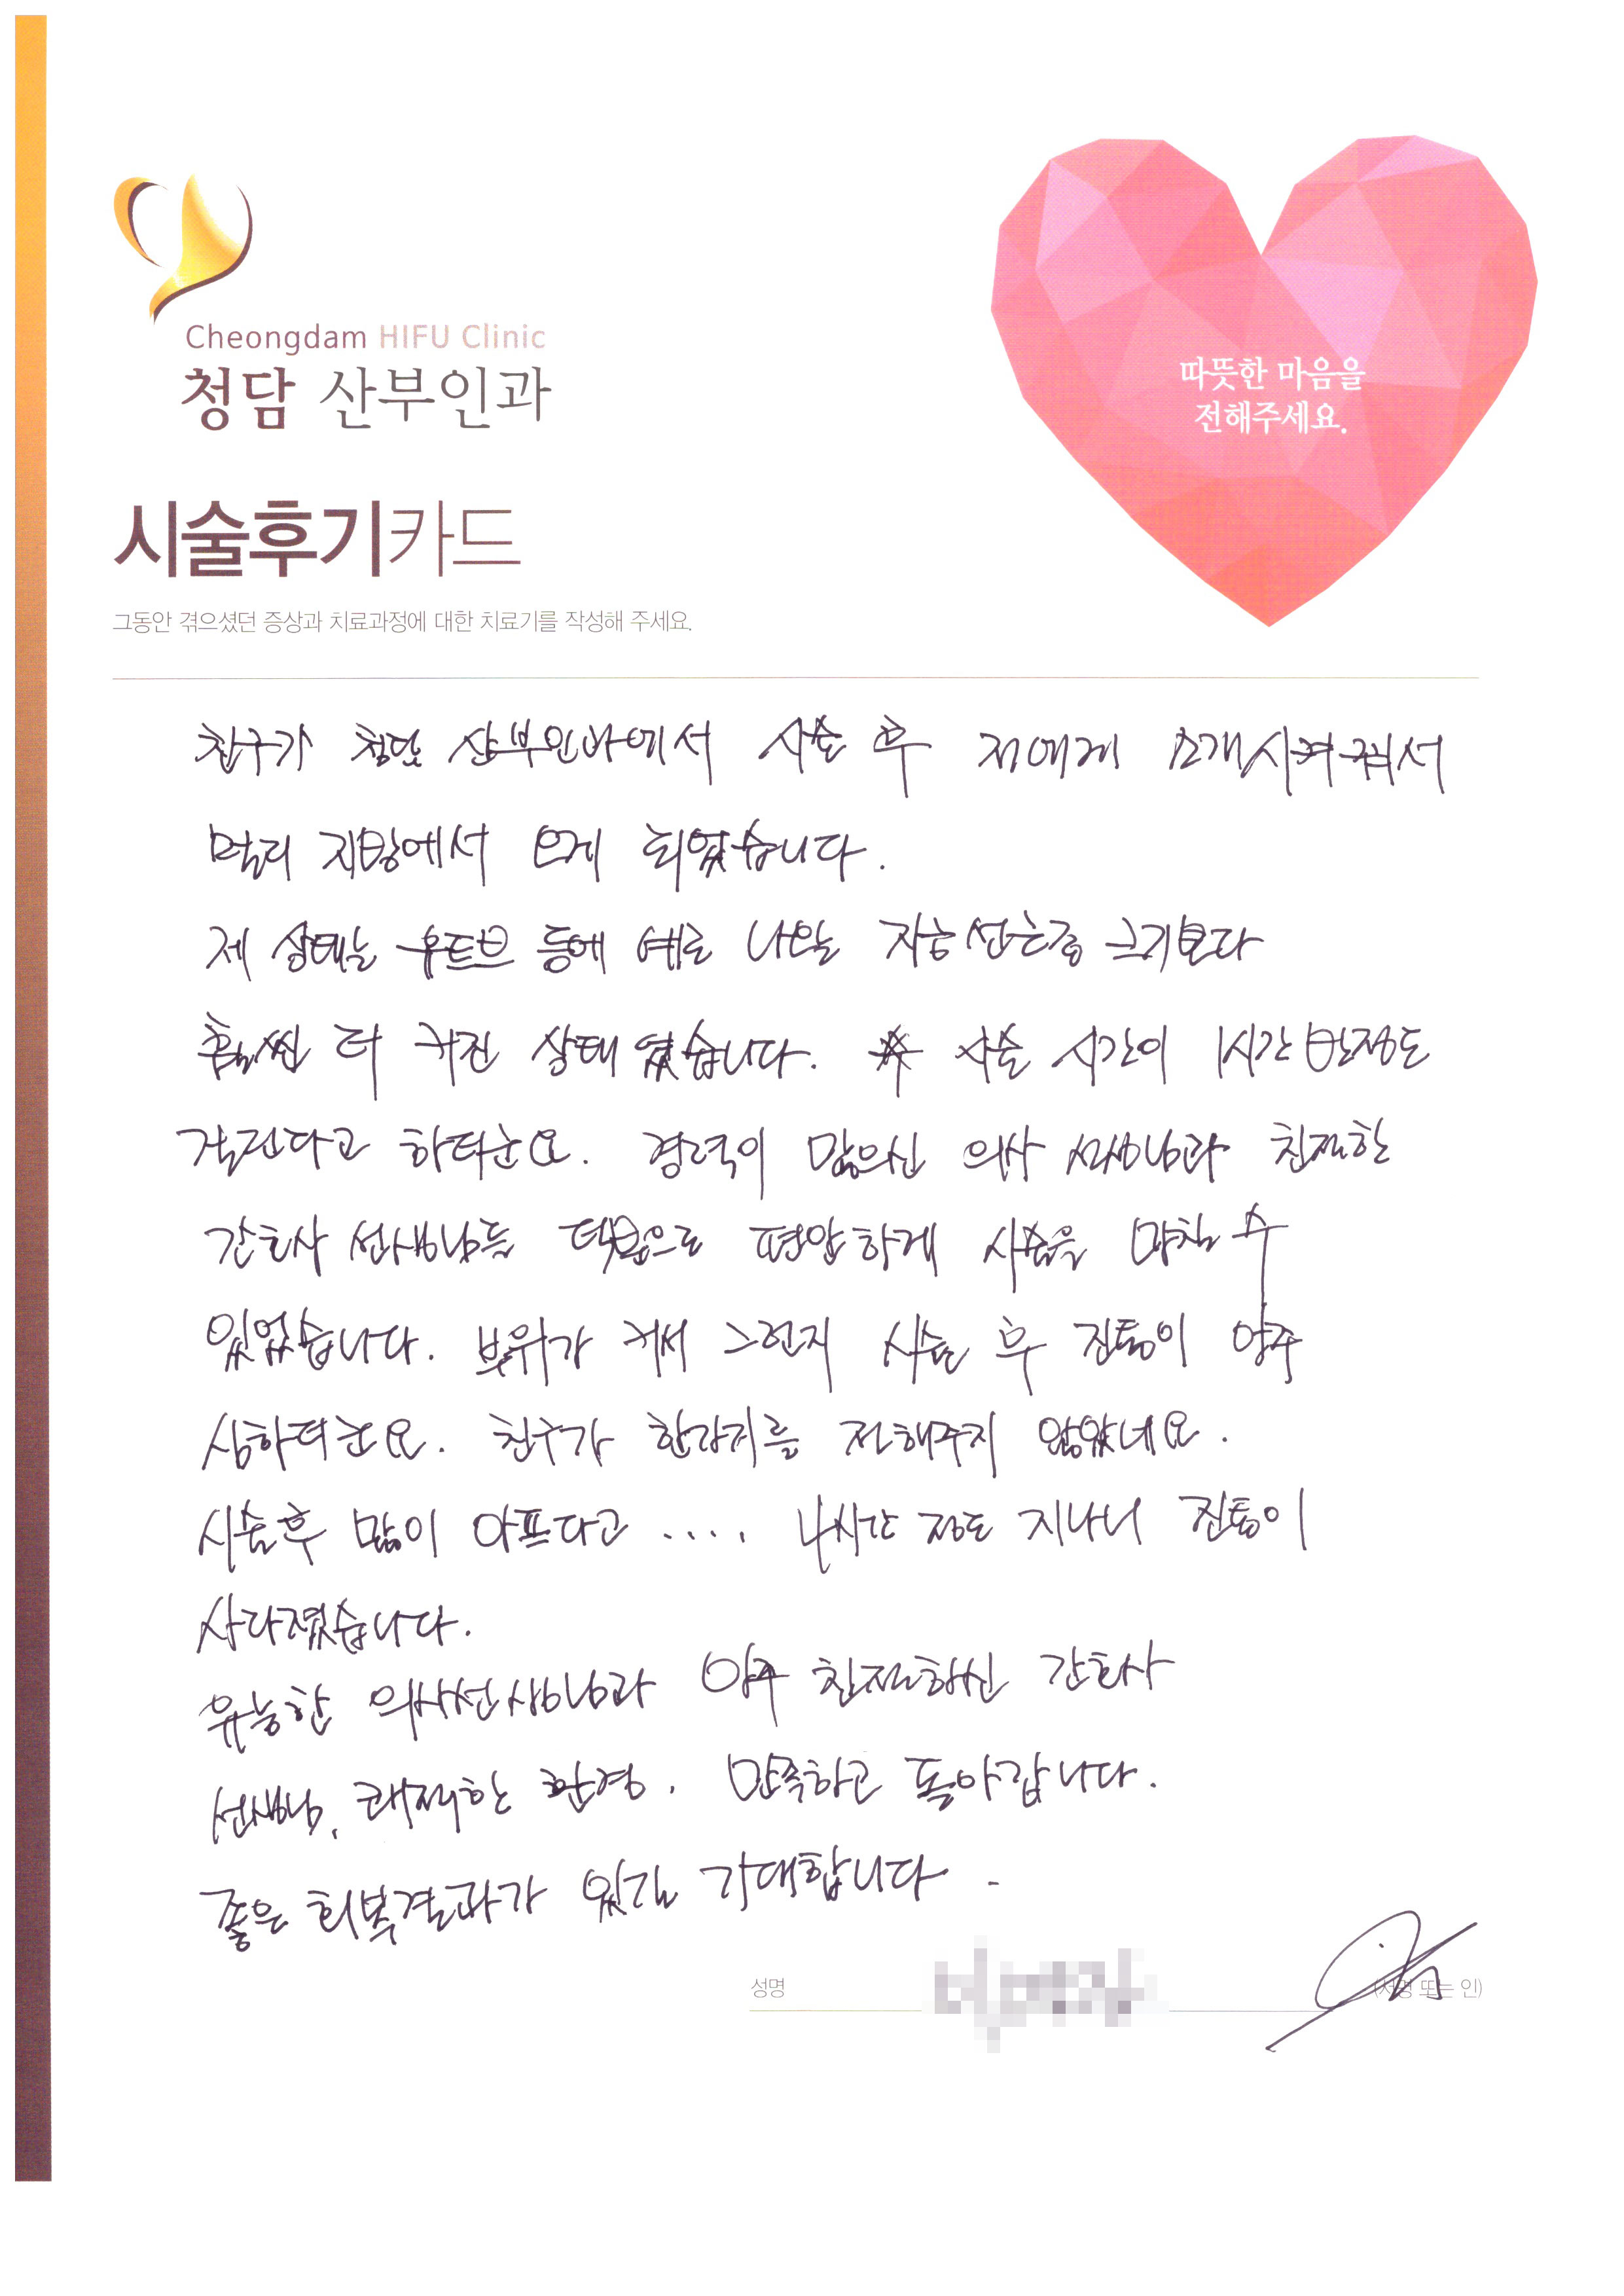 Cheongdam HIFU Clinic
청담 산부인과
따뜻한 마음을
전해주세요.
시술후기카드
그동안 겪으셨던 증상과 치료과정에 대한 치료기를 작성해 주세요.
친구가 청담 산부인과에서 시술 후 저에게 소개시켜줘서
멀리 지방에서 오게 되었습니다.
제 상태는 유트브 등에 예로 나오는 자궁선근종 크기보다
훨씬 더 커진 상태였습니다. 시술 시간이 1시간 반정도
걸린다고 하더군요. 경력이 많으신 의사 선생님과 친절한
간호사 선생님들 덕분으로 편안하게 시술을 마칠 수
있었습니다. 부위가 커서 그런지 시술 후 진통이 아주
심하더군요. 친구가 한가지를 전해주지 않았네요.
시술후 많이 아프다고 .... 4시간 정도 지나니 진통이
사라졌습니다.
유능한 의사선생님과 아주 친절하신 간호사
선생님, 쾌적한 환경. 만족하고 돌아갑니다.
좋은 회복결과가 있길 기대합니다.
성명
(서명 또는 인)